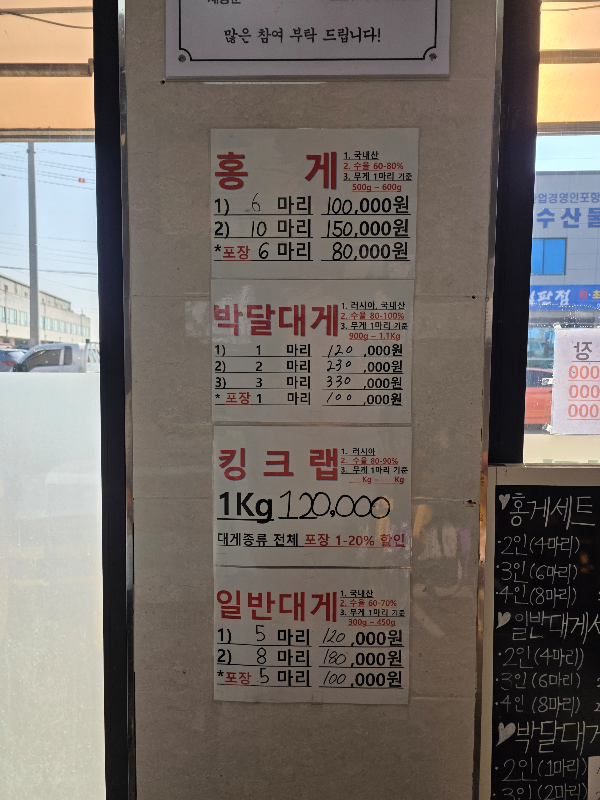 많은 참여 부탁 드립니다!
홍 게
1. 국내산
2. 수율 60-80%
3. 무게 1마리 기준
500g ~ 600g
1) 6 마리 100,000원
2) 10 마리 150,000원
*포장 6 마리 80,000원
박달대게
1. 러시아, 국내산
2. 수율 80-100%
3. 무게 1마리 기준
900g ~ 1.1Kg
1) 1 마리 120,000원
2) 2 마리 230,000원
3) 3 마리 330,000원
* 포장 1 마리 100,000원
킹 크 랩
1. 러시아
2. 수율 80-90%
3. 무게 1마리 기준
Kg ~ Kg
1Kg 120,000
대게종류 전체 포장 1-20% 할인
일반대게
1. 국내산
2. 수율 60-70%
3. 무게 1마리 기준
300g ~ 450g
1) 5 마리 120,000원
2) 8 마리 180,000원
*포장 5 마리 100,000원
수산물
장
000
000
000
♥홍게세트
·2인(4마리)
·3인(6마리)
·4인(8마리)
♥일반대게세
·2인(4마리)
·3인(6마리)
·4인(8마리)
♥박달대게
·2인(1마리)
·3인(2마리)